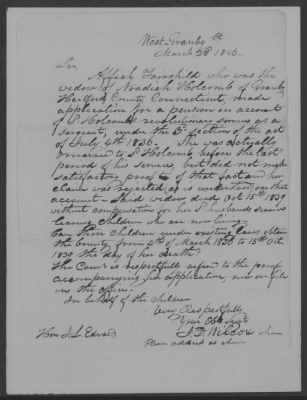 West Granby Ct
March 28th 1846.
Sir
Affiah Fairchild who was the
widow of Noadiah Holcomb of Granby
Hartford County Connecticut, made
application for a pension on account
of S Holcomb revolutionary service as a
sergeant, under the 3d section of the act
of July 4th 1836 - She was actually
married to S Holcomb before the last
period of his service, but did not make
satisfactory proof of that fact and her
claim was rejected as is understood on that
account - Said widow died Oct 15th 1839
without compensation for her S husbands services
leaving children who are now living
Can those children under existing laws obtain
the bounty from 4th of March 1836 to 15th Oct
1839 the day of her death?
The Court is respectfully refered to the proof
accompanying her application, now on file
in the office.
In behalf of the children
Very Respectfully
Your Obt Svt
Hon J L Edward J. D. Wilcox
Please address as above